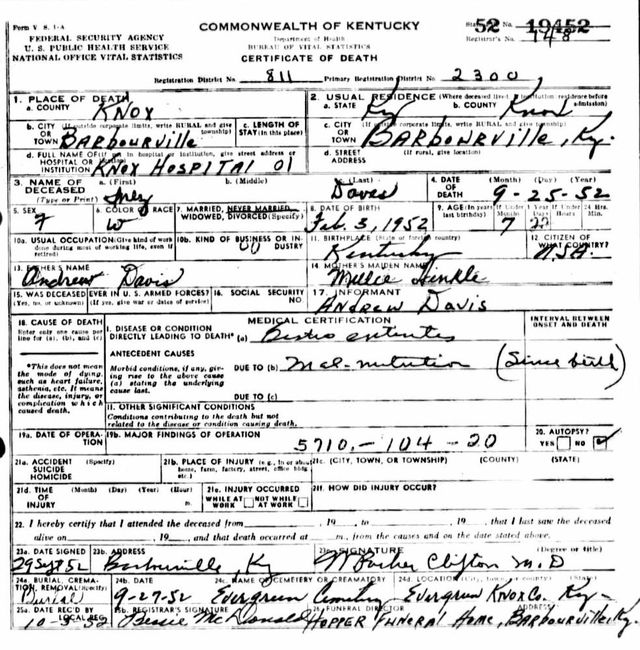 Form V S. 1-A
COMMONWEALTH OF KENTUCKY
State File No. 52 19452
FEDERAL SECURITY AGENCY
Department of Health
Registrar's No. 148
U. S. PUBLIC HEALTH SERVICE
BUREAU OF VITAL STATISTICS
NATIONAL OFFICE VITAL STATISTICS
CERTIFICATE OF DEATH
Registration District No. 811 Primary Registration District No. 2300
1. PLACE OF DEATH
2. USUAL RESIDENCE (Where deceased lived. If institution residence before admission)
a. COUNTY KNOX
a. STATE Ky b. COUNTY Knox
b. CITY OR TOWN (If outside corporate limits, write RURAL and give township) BARBOURVILLE
c. LENGTH OF STAY (in this place)
c. CITY OR TOWN (If outside corporate limits, write RURAL and give township) BARBOURVILLE, Ky.
d. FULL NAME OF HOSPITAL OR INSTITUTION (If not in hospital or institution, give street address or location) KNOX HOSPITAL 01
d. STREET ADDRESS (If rural, give location)
3. NAME OF DECEASED (Type or Print)
a. (First) Inez
b. (Middle)
c. (Last) Davis
4. DATE OF DEATH (Month) (Day) (Year) 9-25-52
5. SEX F
6. COLOR OR RACE W
7. MARRIED, NEVER MARRIED, WIDOWED, DIVORCED (Specify)
8. DATE OF BIRTH Feb. 3, 1952
9. AGE (In years last birthday) If Under 1 Year Months 7 Days 22 If Under 24 Hrs.
10a. USUAL OCCUPATION (Give kind of work done during most of working life, even if retired)
10b. KIND OF BUSINESS OR INDUSTRY
11. BIRTHPLACE (State or foreign country) Kentucky
12. CITIZEN OF WHAT COUNTRY? U.S.A.
13. FATHER'S NAME Andrew Davis
14. MOTHER'S MAIDEN NAME Millie Hinkle
15. WAS DECEASED EVER IN U. S. ARMED FORCES? (Yes, no, or unknown) (If yes, give war or dates of service)
16. SOCIAL SECURITY NO.
17. INFORMANT ANDREW DAVIS
18. CAUSE OF DEATH
Enter only one cause per line for (a), (b), and (c)
MEDICAL CERTIFICATION
INTERVAL BETWEEN ONSET AND DEATH
I. DISEASE OR CONDITION DIRECTLY LEADING TO DEATH* (a)
*This does not mean the mode of dying, such as heart failure, asthenia, etc. It means the disease, injury, or complication which caused death.
ANTECEDENT CAUSES
Morbid conditions, if any, giving rise to the above cause (a) stating the underlying cause last.
DUE TO (b) Mal-nutrition (Since birth)
DUE TO (c)
II. OTHER SIGNIFICANT CONDITIONS
Conditions contributing to the death but not related to the disease or condition causing death.
19a. DATE OF OPERATION
19b. MAJOR FINDINGS OF OPERATION
5710,-104-20
20. AUTOPSY? YES NO ✓
21a. ACCIDENT SUICIDE HOMICIDE (Specify)
21b. PLACE OF INJURY (e.g., in or about home, farm, factory, street, office bldg., etc.)
21c. (CITY, TOWN, OR TOWNSHIP) (COUNTY) (STATE)
21d. TIME OF INJURY (Month) (Day) (Year) (Hour) m.
21e. INJURY OCCURRED WHILE AT WORK NOT WHILE AT WORK
21f. HOW DID INJURY OCCUR?
22. I hereby certify that I attended the deceased from , 19 to , 19 , that I last saw the deceased
alive on , 19 , and that death occurred at m., from the causes and on the date stated above.
23a. DATE SIGNED 29 Sept 52
23b. ADDRESS Barbourville, Ky
23c. SIGNATURE Parker Clifton M.D (Degree or title)
24a. BURIAL, CREMATION, REMOVAL (Specify) Burial
24b. DATE 9-27-52
24c. NAME OF CEMETERY OR CREMATORY Evergreen Cemetery
24d. LOCATION (City, town, or county) (State) Evergreen Knox Co. Ky-
25a. DATE REC'D BY LOCAL REG. 10-3-52
25b. REGISTRAR'S SIGNATURE Bessie McDonald
26. FUNERAL DIRECTOR ADDRESS HOPPER FUNERAL HOME, BARBOURVILLE, Ky.